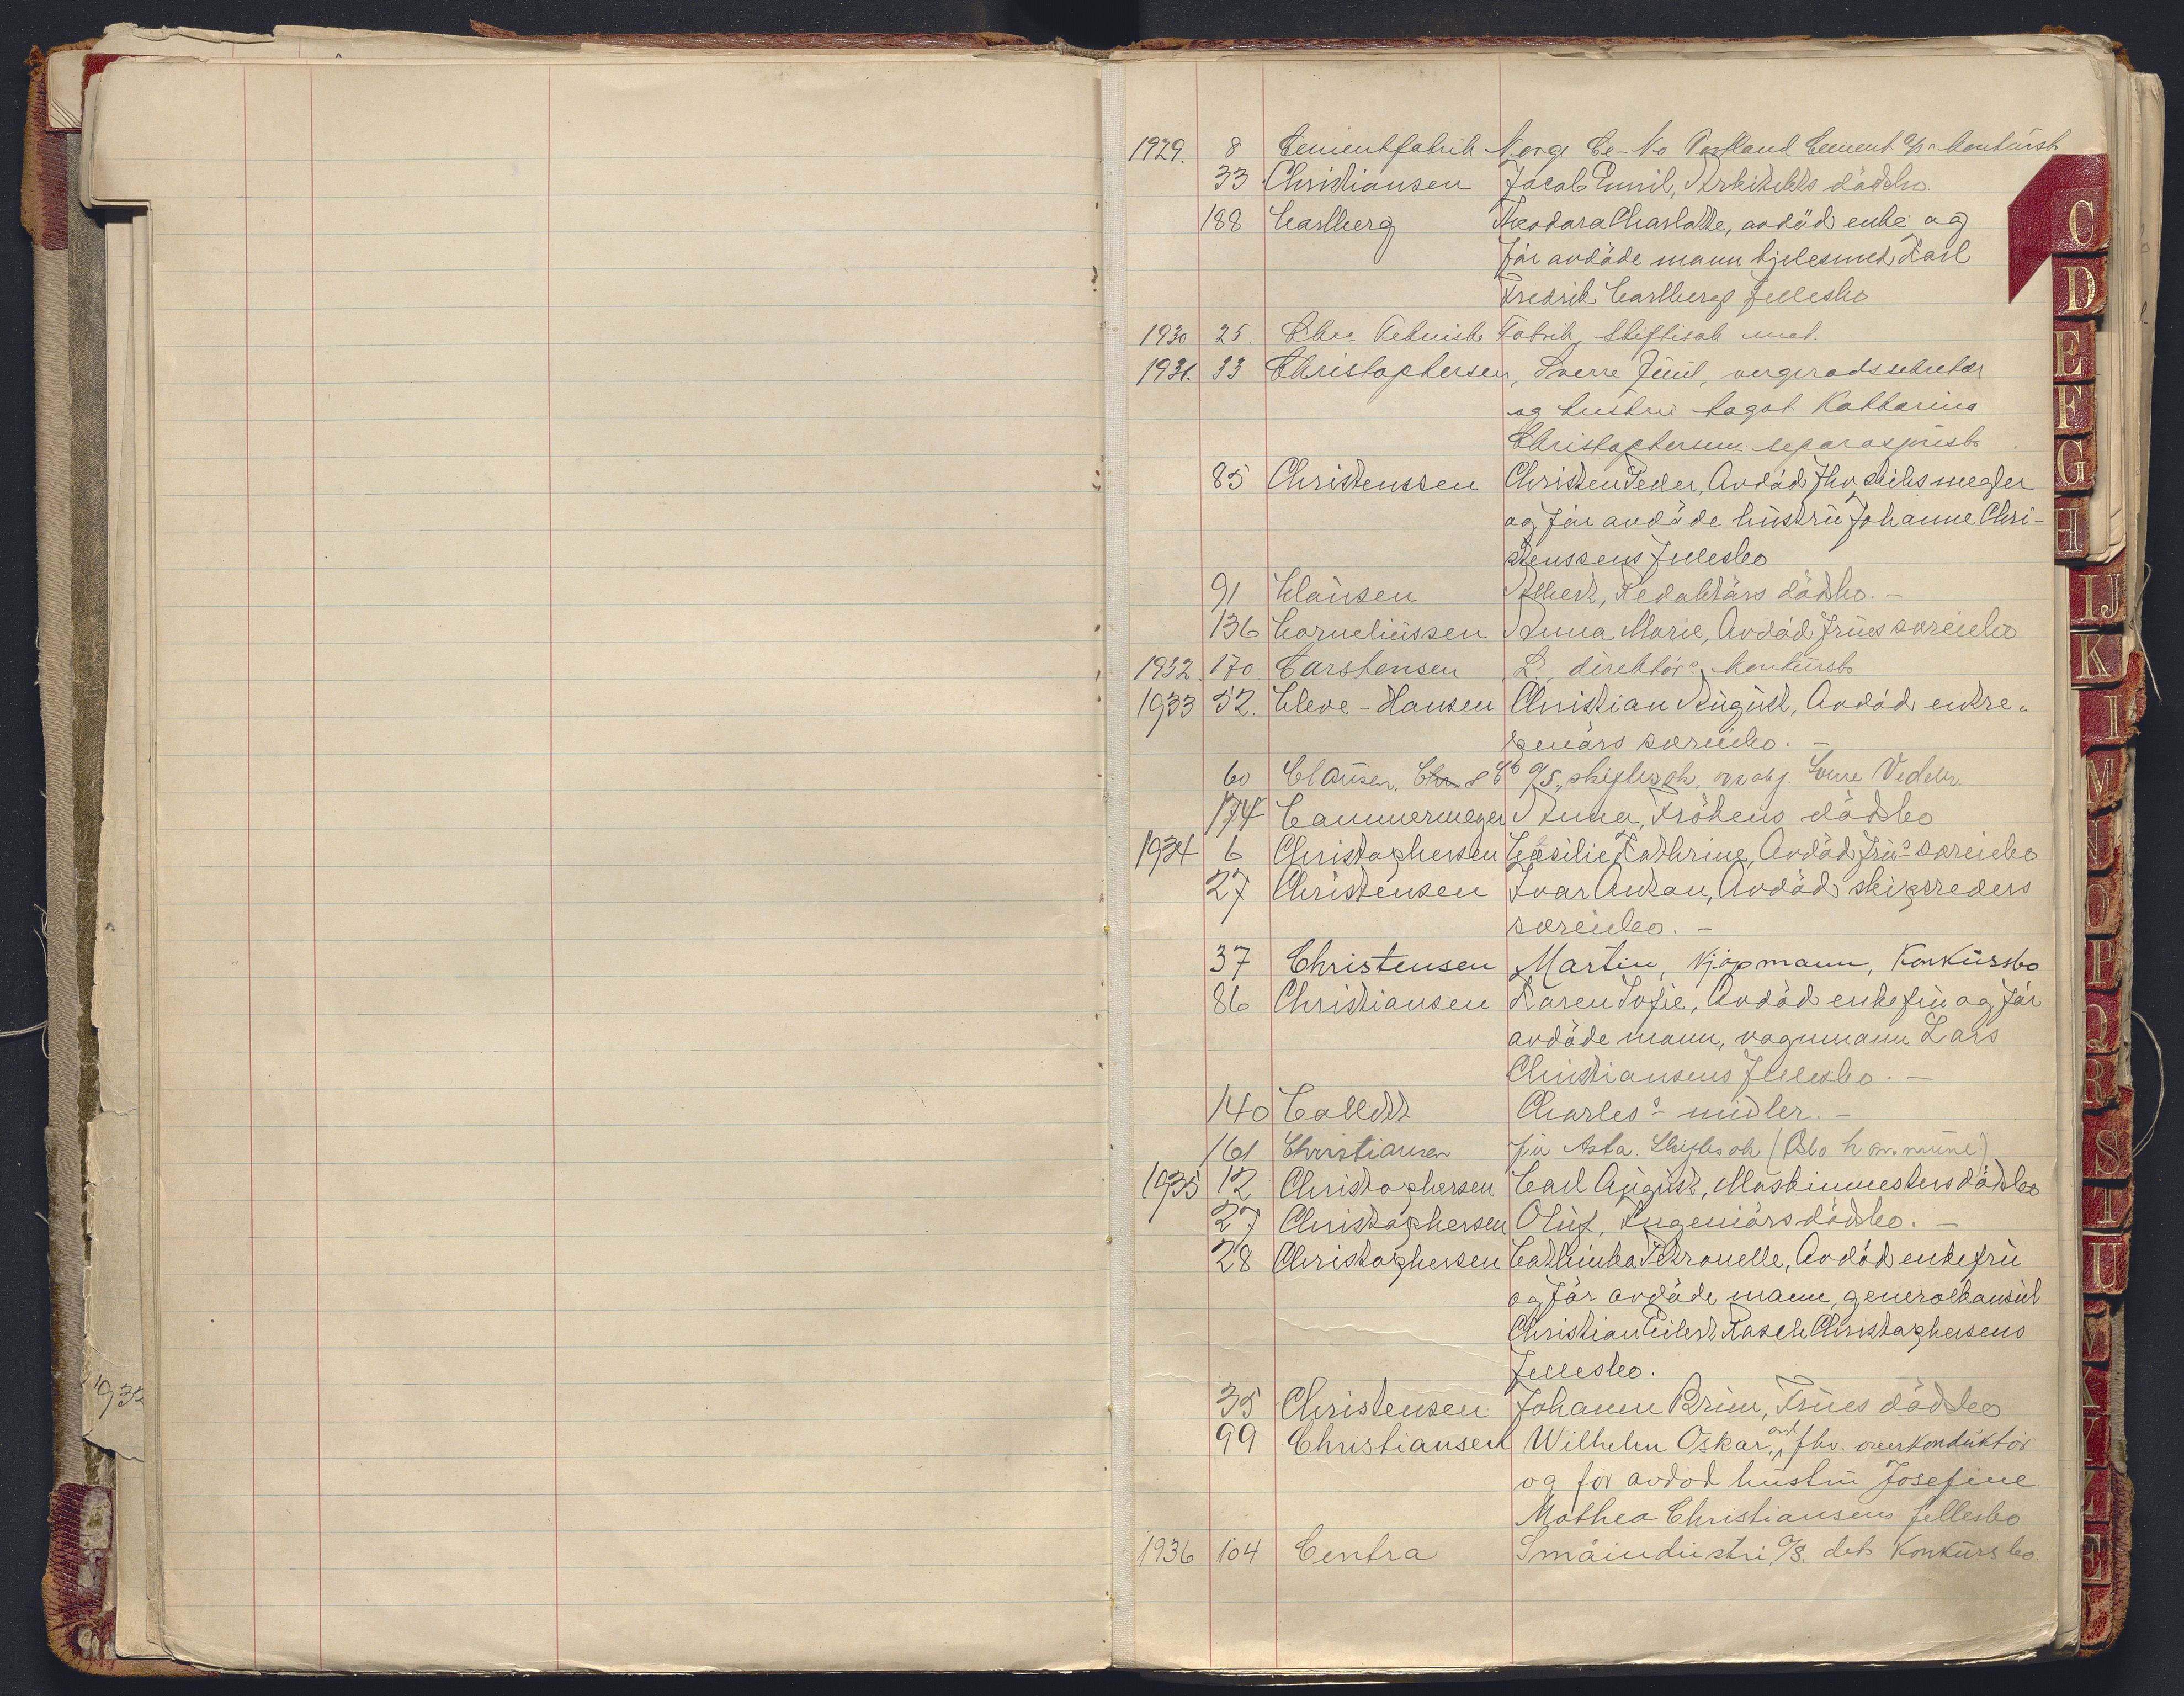 1929. 8 Cementfabrik Norge Ce-No Portland Cement A/S konkursbo
33 Christiansen Jacob Emil, Arkitekts dödsbo.
188 Carlberg Theodora Charlotte, avdöd enke og
för avdöde mann hjelesmed Karl
Fredrik Carlbergs fellesbo
1930 25. Chr. Tekniske Fabrik, skiftesak mot.
1931. 33 Christophersen, Sverre Juul, vergerådssekretær
og hustru Dagot Katharina
Christophersens separasjonsbo
85 Christenssen Christen Peder, Avdöd fhv skibsmegler
og för avdöde hustru Johanne Chri-
stenssens fellesbo
91 Clausen Albert, Redaktörs dödsbo. -
136 Corneliussen Anna Marie, Avdöd frues særeiebo
1932. 170. Carstensen L., direktör's konkursbo
1933 52. Cleve-Hansen Christian August, Avdöd entre-
prenörs særeiebo. -
60 Clausen, Chr. & Co A/S, skiftesak, Sverre Vedeler.
174 Cammermeyer Anna, Frökens dödsbo
1934 6 Christophersen Cæsilie Kathrine, Avdöd frus særeiebo
27 Christensen Ivar Anton, Avdöd skipsreders
særeiebo. -
37 Christensen Martin, kjøpmann, Konkursbo
86 Christiansen Karen Sofie, Avdöd enkefru og för
avdöde mann, vognmann Lars
Christiansens fellesbo. -
140 Collett Charles' midler. -
161 Christiansen fru Asta. Skiftesak (Oslo kommune)
1935 12 Christophersen Carl August, Maskinmesters dödsbo
27 Christophersen Oluf, Ingeniörs dödsbo. -
28 Christophersen Cathinka Petronelle, Avdöd enkefru
og för avdöde mann, generalkonsul
Christian Eilert Rasch Christophersens
fellesbo.
35 Christensen Johanne Brim, Frues dödsbo
99 Christiansen Wilhelm Oskar, avd fhv. overkonduktör
og før avdöd hustru Josefine
Mathea Christiansens fellesbo
1936 104 Centra Småindustri A/S. dets Konkursbo.
1932
C
D
E
F
G
H
IJ
K
M
N
O
P
Q
R
S
T
U